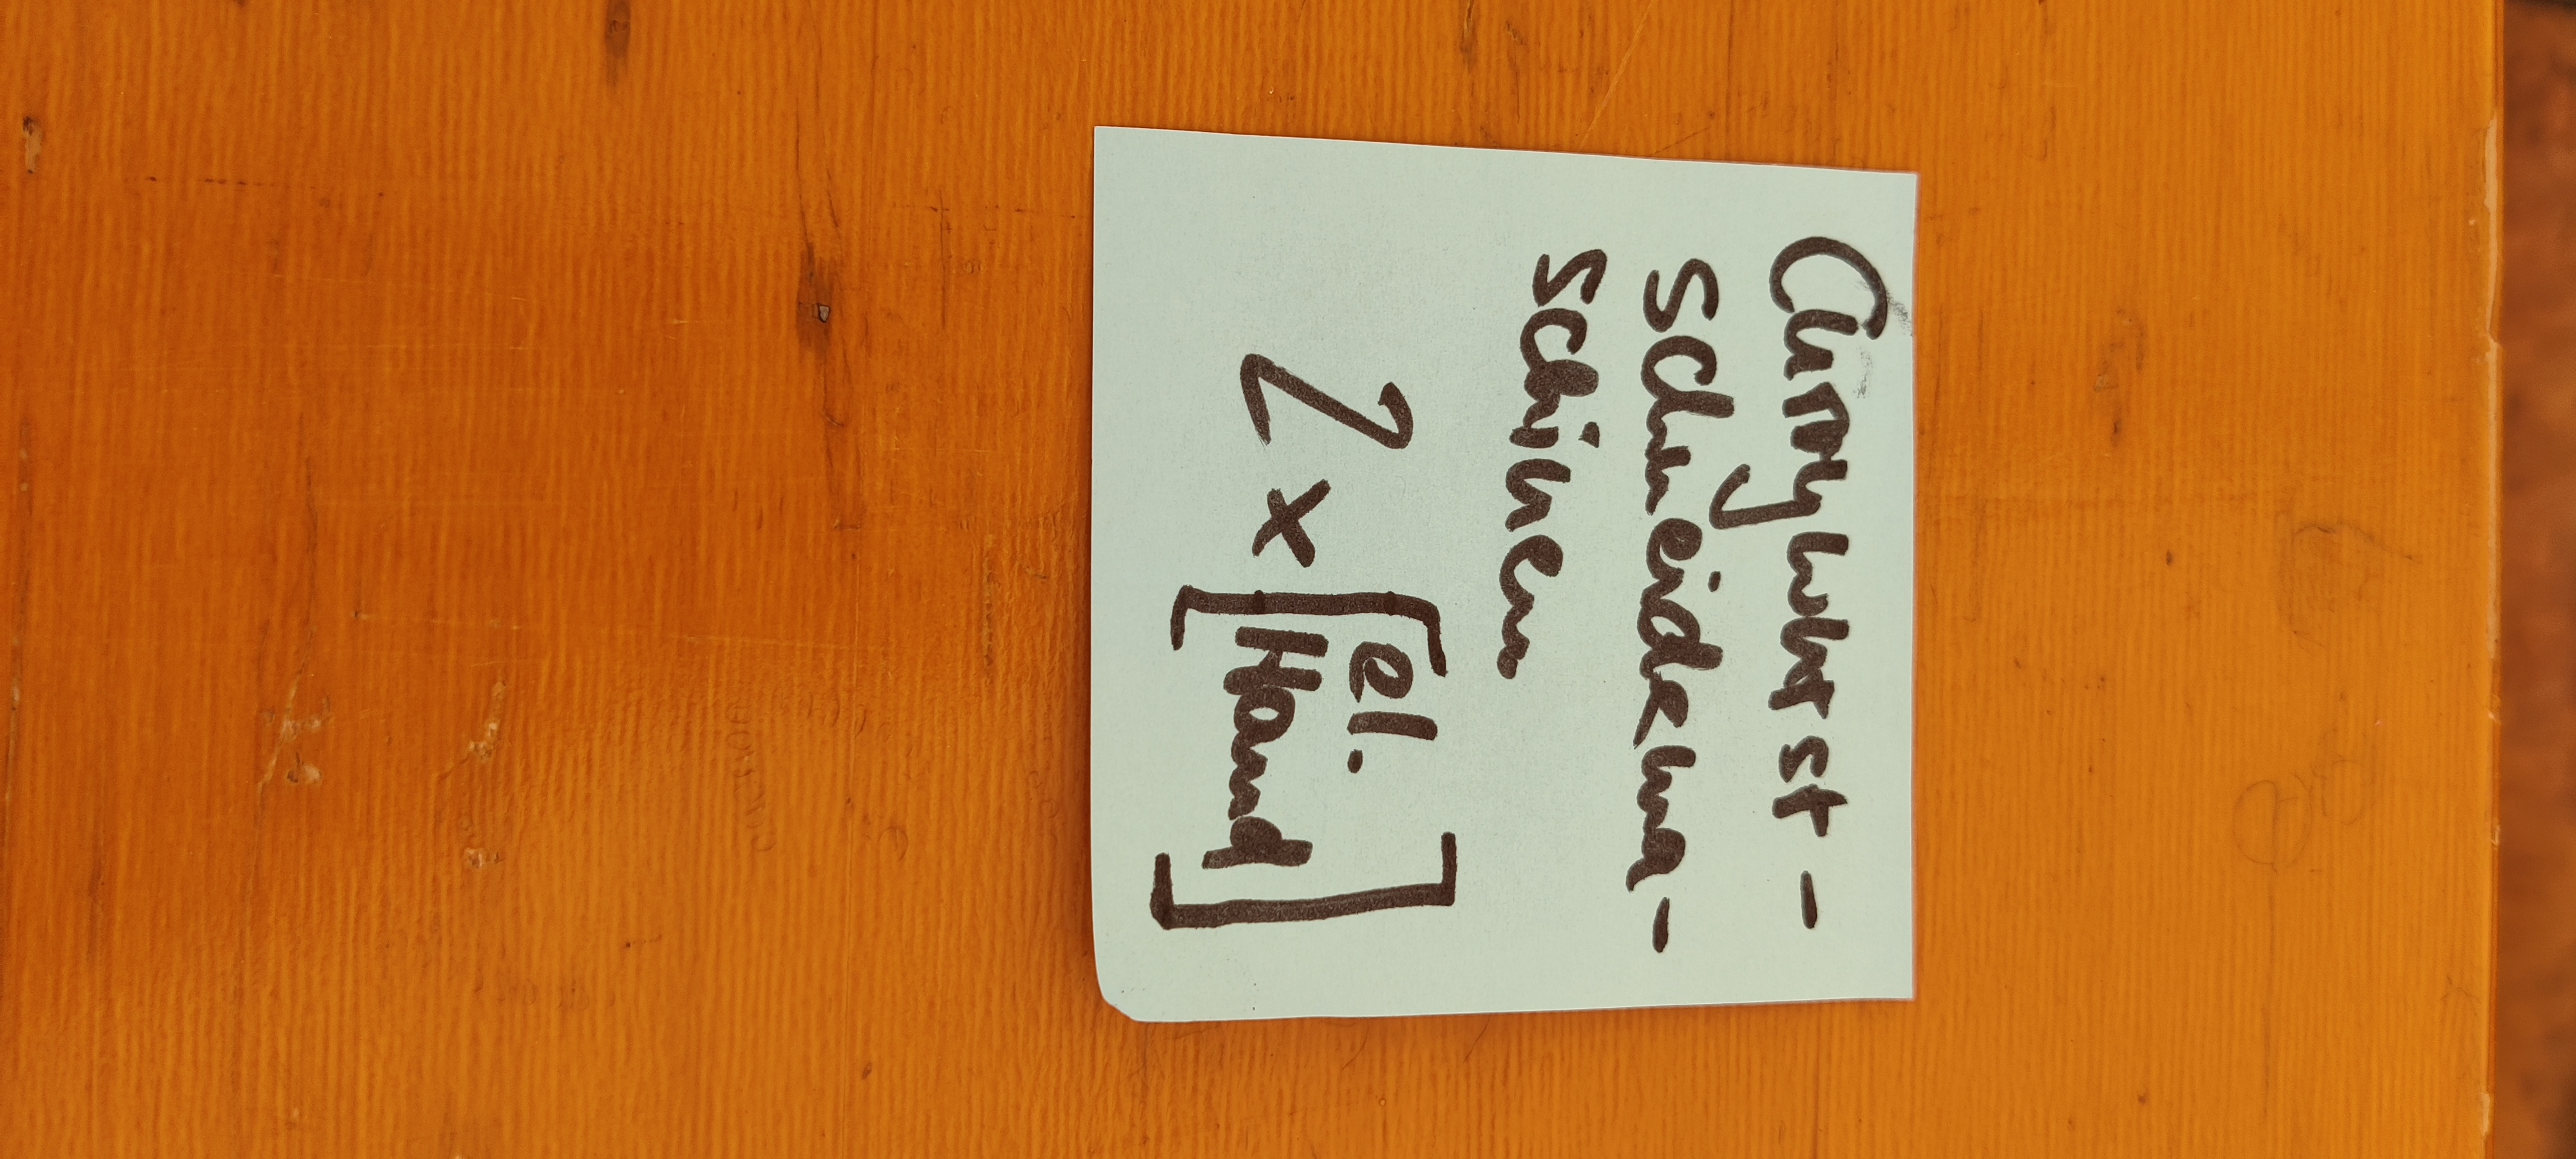 Currywurst-
schneidema-
schinen
2x [el.
Hand]